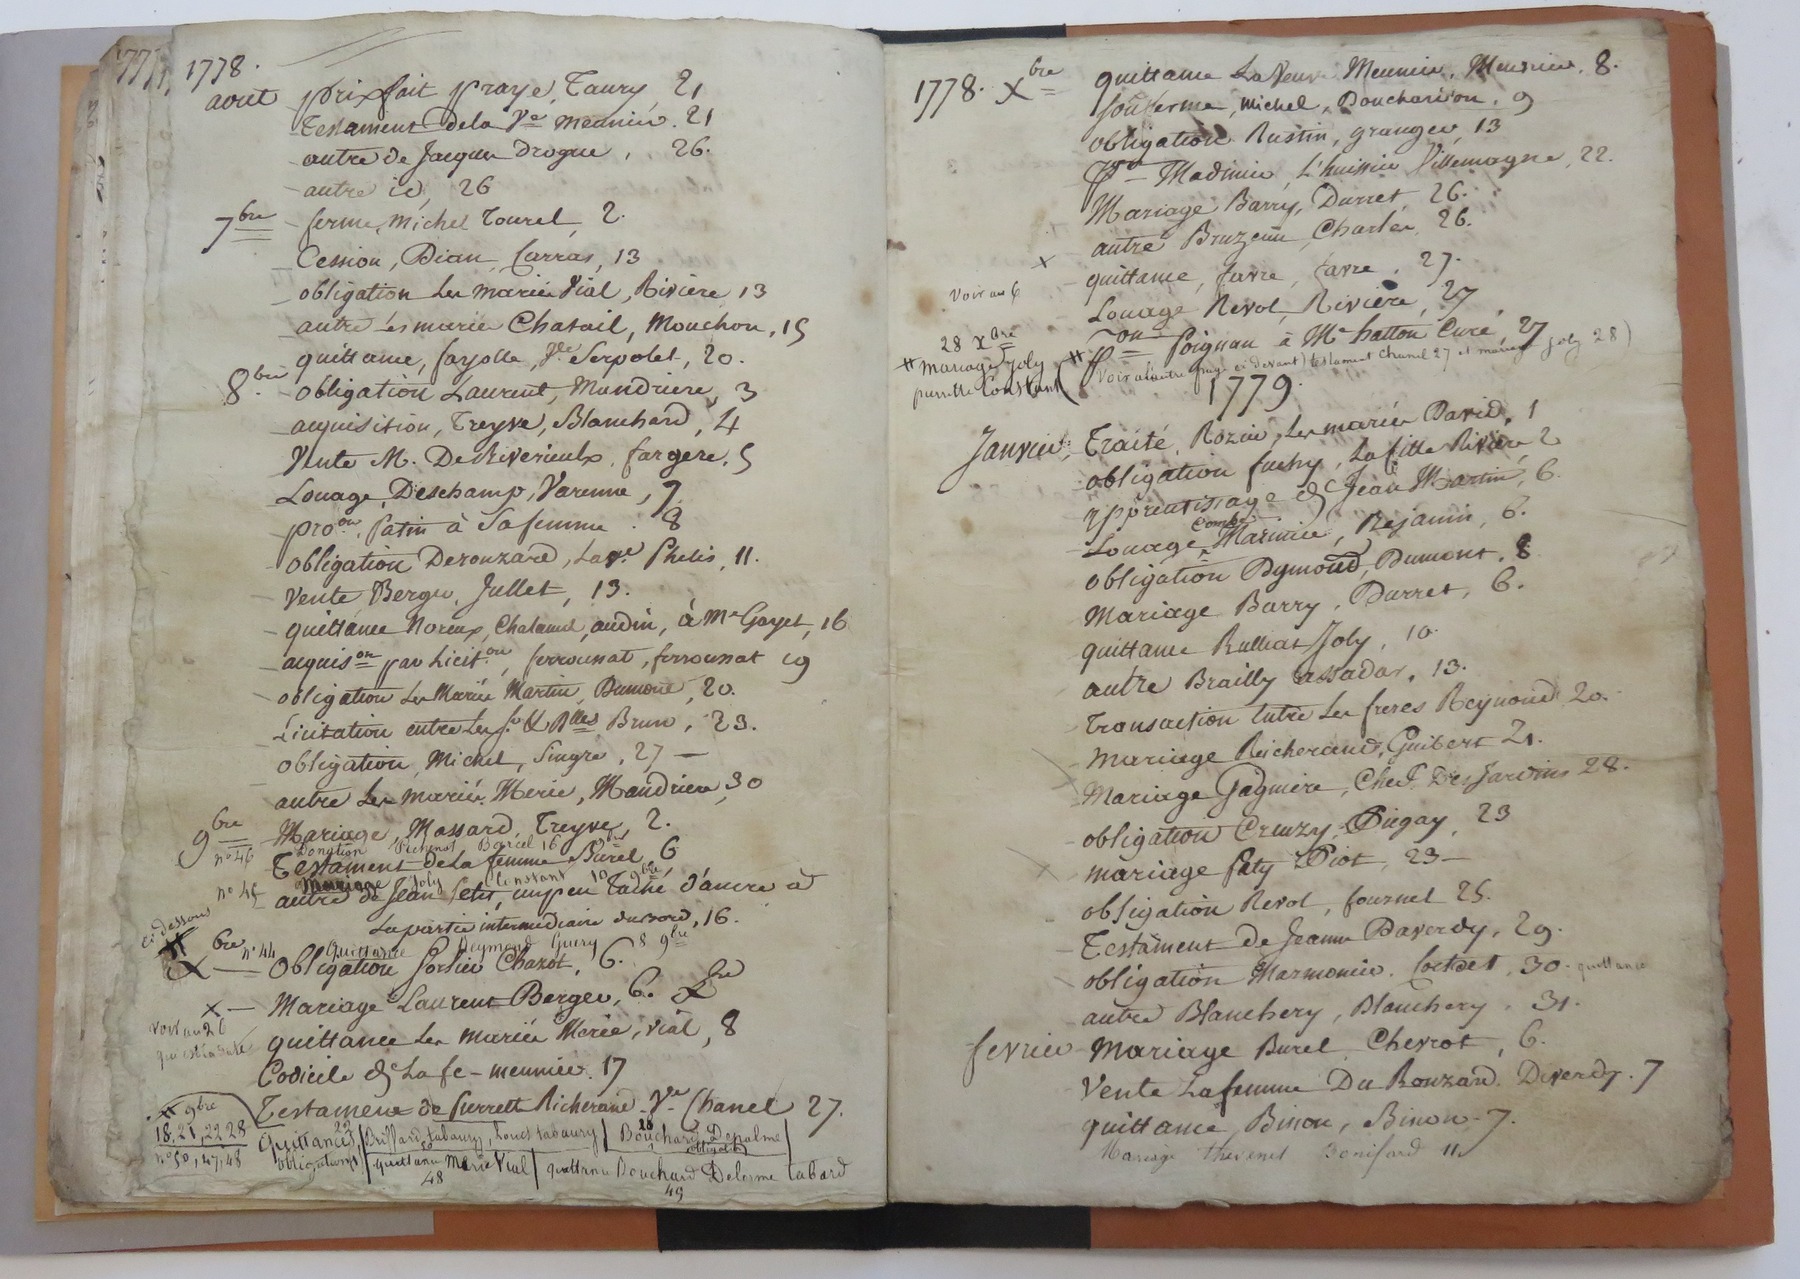 1777, 1778.
aout prixfait praye, Taury, 21
Testament dela Ve meunier. 21
autre de Jacques Drogue, 26.
autre id, 26
7bre ferme, Michel Tourel, 2.
Cession, Dian, Carras, 13
obligation les mariés Vial, Rivière, 13
autre les mariés Chatail, Mouchon, 15
quittance, fayolle, Ve Serpolet, 20.
8.bre obligation Laurent, Mandriere, 3
acquisition, Treyve, Blanchard, 4
Vente M. DeRiverieulx, fargere, 5
Louage, Deschamp, Varenne, 7
proon. Patin à Safemme. 8
obligation Derouzard, La ve Philis, 11.
Vente Berger, Jullet, 13.
quittance Noreux, Chalamel, audin, à Me Gayet, 16
acquison par Liciton, ferrounat, ferrounat 19
obligation les Mariés Martin, Dumond, 20.
Licitation entre Les Sr & Dlles Brun, 23.
obligation, Michel, Singre, 27 —
autre les mariés Merie, Mandriere, 30
9bre Mariage, Massard, Treyve, 2.
n° 46 Donation Pichenot Barcel 16 9bre
Testament de La femme Burel, 6
n° 45 Mariage Joly Constant 10 9bre
autre de Jean Petit, un peu Taché d'ancre à
La partie intermediaire du bord, 16.
ci dessous
n° 44 Quittance Reymond Guiry 8 9bre
Xbre — Obligation Portier Chazot, 6.
X — Mariage Laurent Berger, 6. Xbre
voir au 26
qui est la date
quittance les mariés Merie, Vial, 8
Codicile de La fe - meunier. 17
Testament de Pierrette Richerand Ve Chanel 27.
# 9bre
18, 21, 22 28
n° 50, 47, 48
Quittances 22 Briffard, tabaury, Louis tabaury | Bouchard Depalme 28
obligations | quittance Merie Vial | quittance Bouchard Delorme tabard
48 49
1778. Xbre quittance La Veuve Meunier, Meunier, 8.
Souferme, Michel, Bouchardon, 9
obligation Rustin, granger, 13
Pon — Madinier, L'huissier Villemagne, 22.
Mariage Barry, Durret, 26.
autre Charles, 26.
X quittance, favre, favre, 27.
voir au 6
Louage Revol, Rivière, 27
Pon — Poignan à Me hatton Curé, 27
28 Xbre
# mariage joly
pierrette Constant
(# Voir alautre page ci devant) testament Chanel 27 et mariage joly 28)
1779.
Janvier. Traité, Rozier, les mariés David, 1
obligation fuchy, La fille Rivière 2
apprentissage de Jean Martin, 6.
Louage, Combe Marmier, Rejanin, 6.
obligation Dymond, Dumont, 8
Mariage Barry, Durret, 6.
quittance Rulliat Joly, 10.
autre Brailly assadas, 13.
Transaction entre les freres Reynond 20.
Mariage Richerand, Guibert 21.
Mariage Gagniere, Desjardins 28.
obligation Creuzy, Piegay, 23
mariage faty Piot, 23 —
obligation Revol, fournel 25.
Testament de Jeanne Daverdy, 29.
obligation Marmonier, 30. quittance
autre Blanchery, Blanchery, 31.
fevrier Mariage Burel, Chevrot, 6.
Vente Lafemme Du Rouzard. Diverdy. 7
quittance, Binon, Binon - 7.
Mariage Thevenet Bonifard 11.